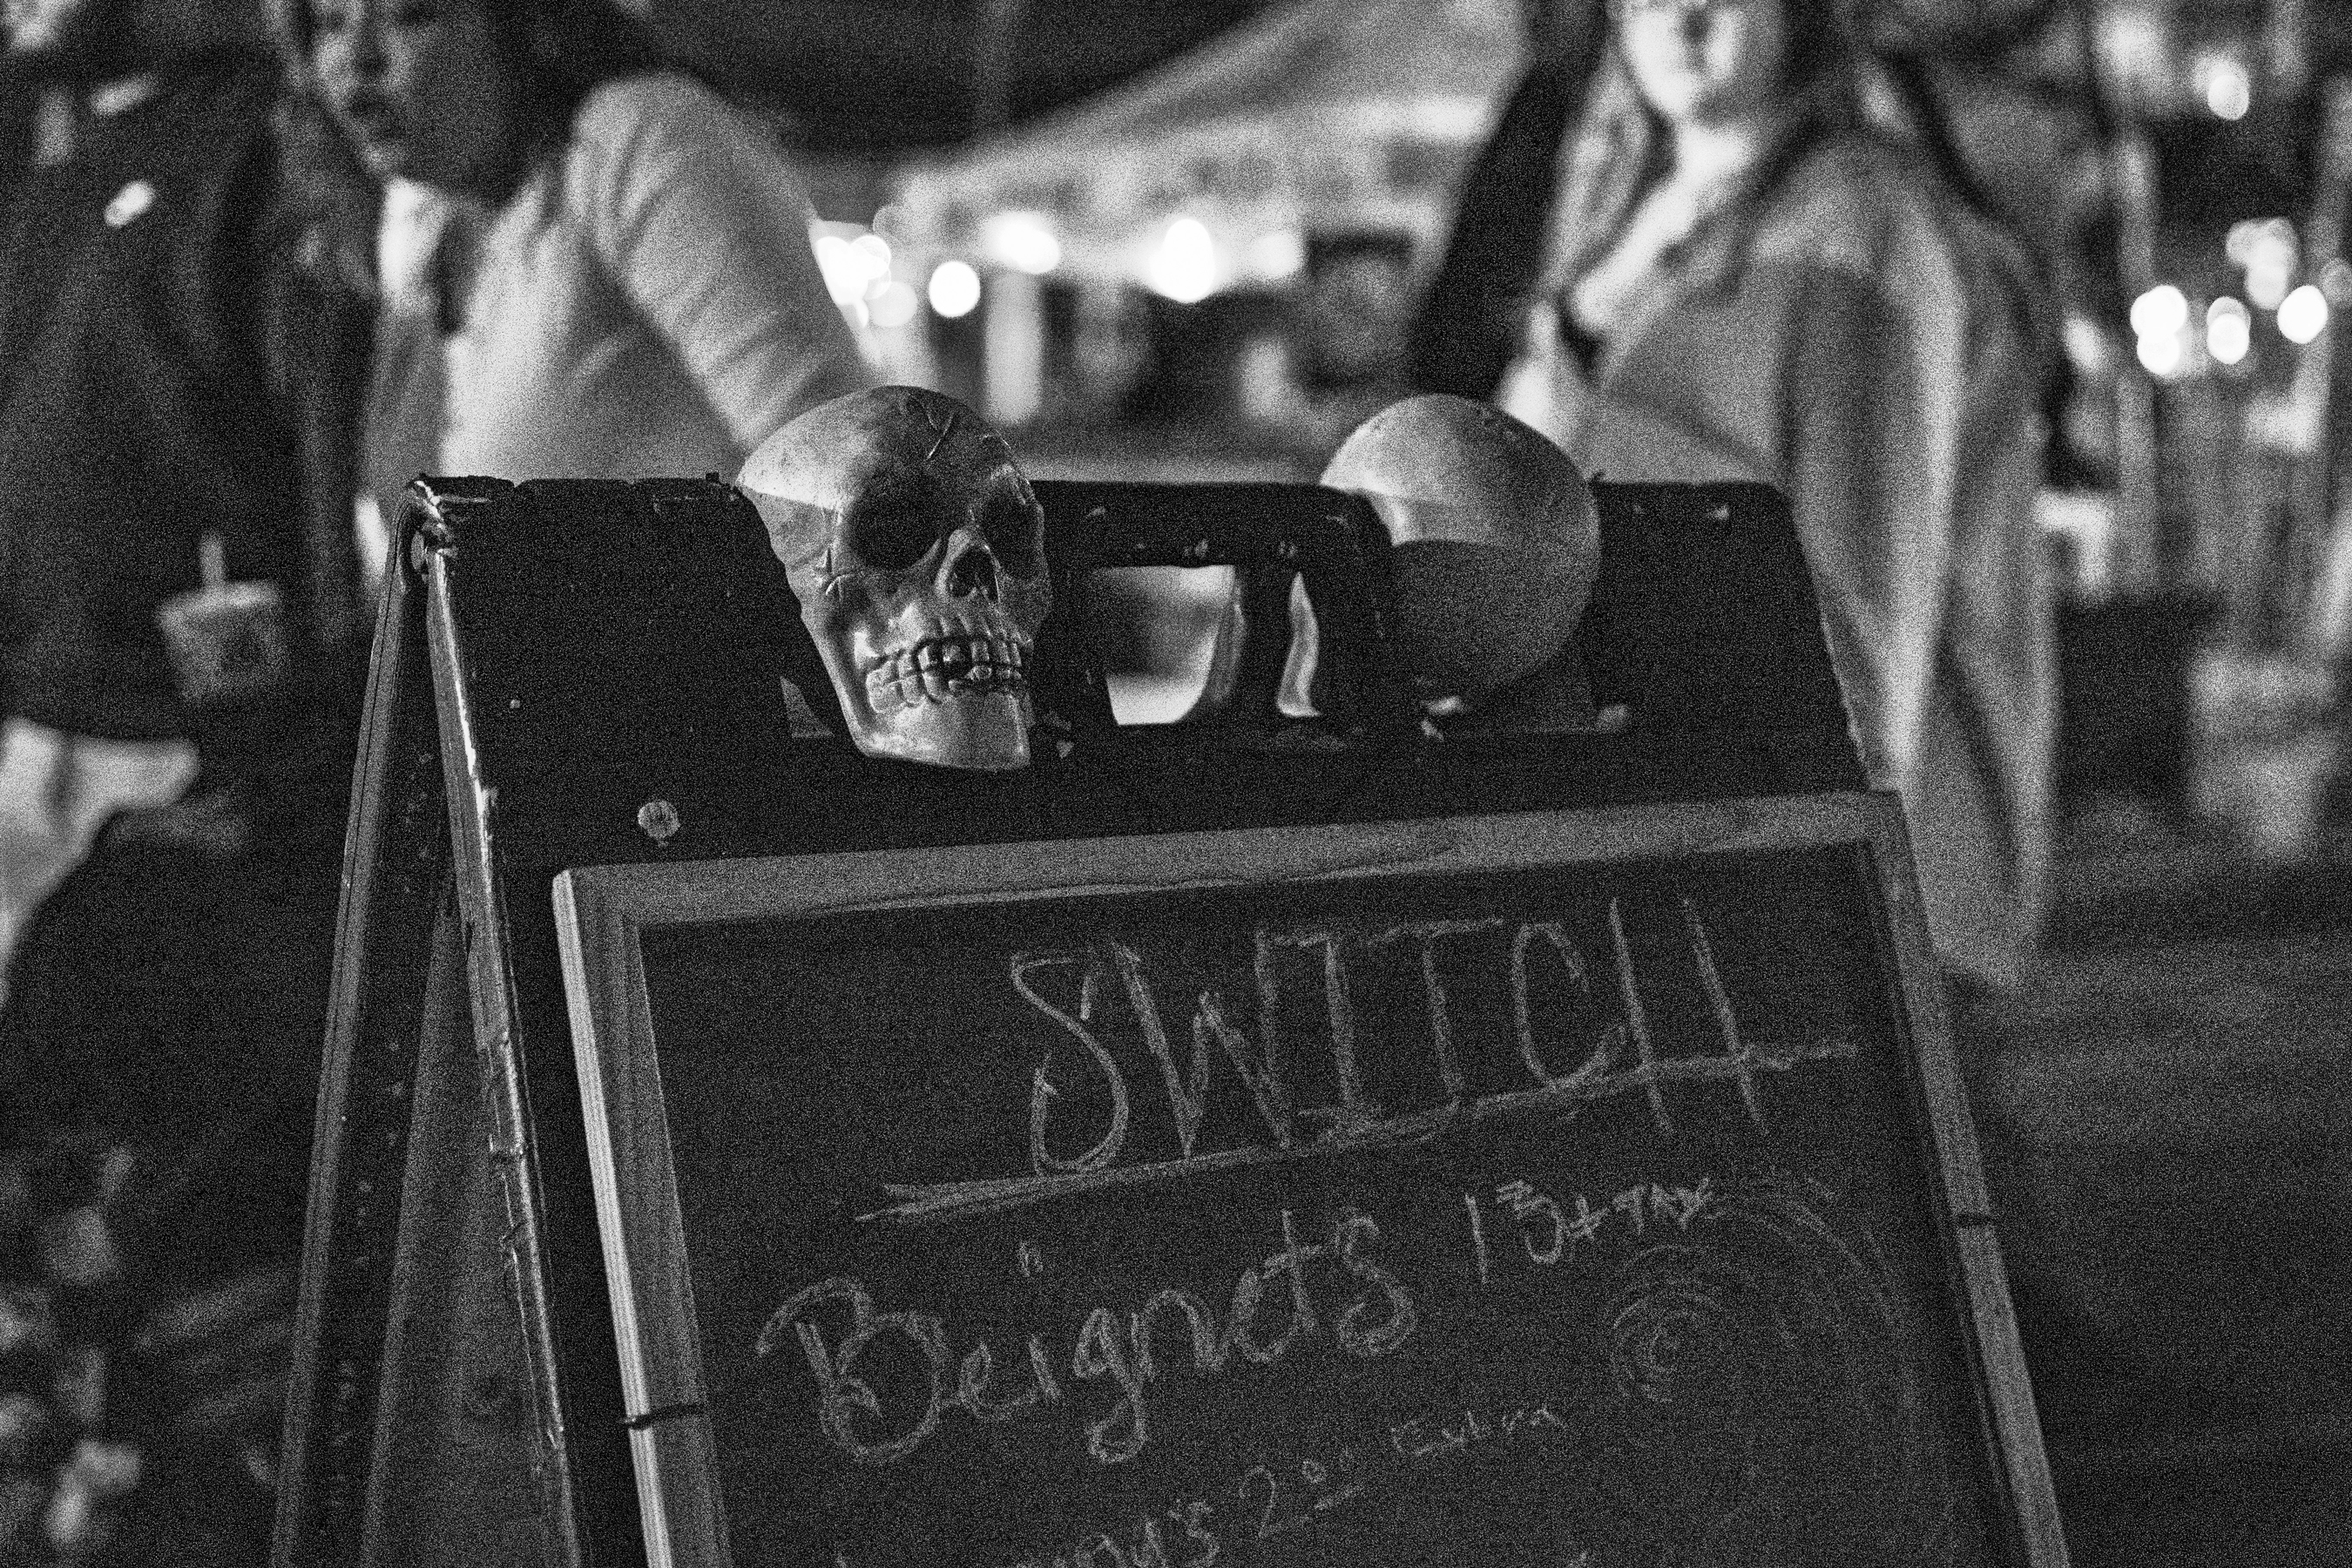 SWITCH
Beignets 13 + TAX
2.00 Extra